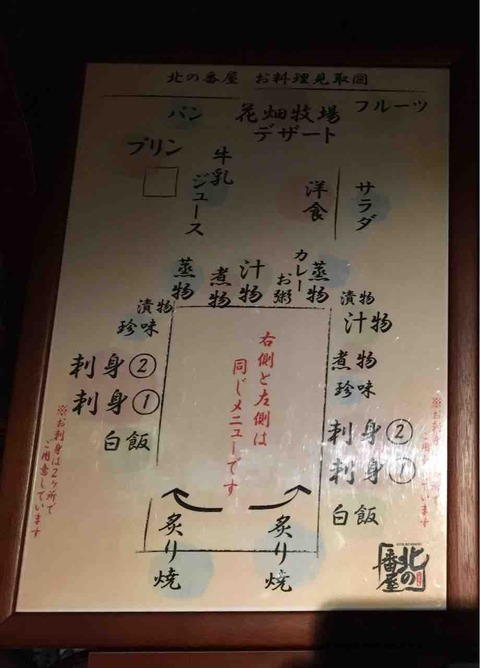 北の番屋 お料理見取図
パン
花畑牧場
デザート
フルーツ
プリン
牛乳
ジュース
洋食
サラダ
蒸物
煮物
汁物
カレー
お粥
蒸物
漬物
珍味
漬物
汁物
煮物
珍味
刺身②
刺身①
白飯
右側と左側は
同じメニューです
刺身②
刺身①
白飯
※お刺身は2ヶ所で
ご用意しています
※お刺身は
ご用意しています
炙り焼
炙り焼
北の
番屋